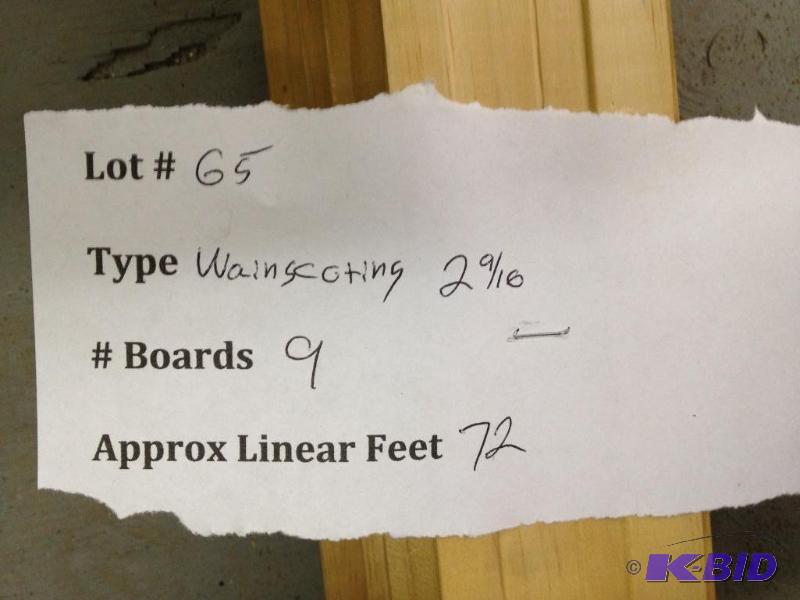 Lot # 65
Type Wainscoting 2 9/16
# Boards 9
Approx Linear Feet 72
© K-BID